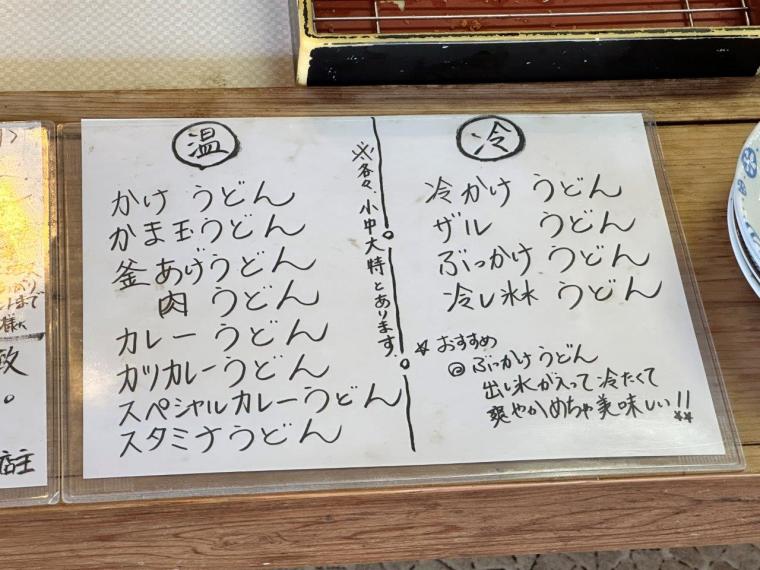 温
かけ うどん
かま玉うどん
釜あげうどん
肉 うどん
カレー うどん
カツカレーうどん
スペシャルカレーうどん
スタミナうどん
※各々、小中大特とあります。
冷
冷かけ うどん
ザル うどん
ぶっかけ うどん
冷し水 うどん
☆おすすめ
◎ぶっかけうどん
出し氷が入って冷たくて
爽やかめちゃ美味しい!!
まで
様に
致
。
店主